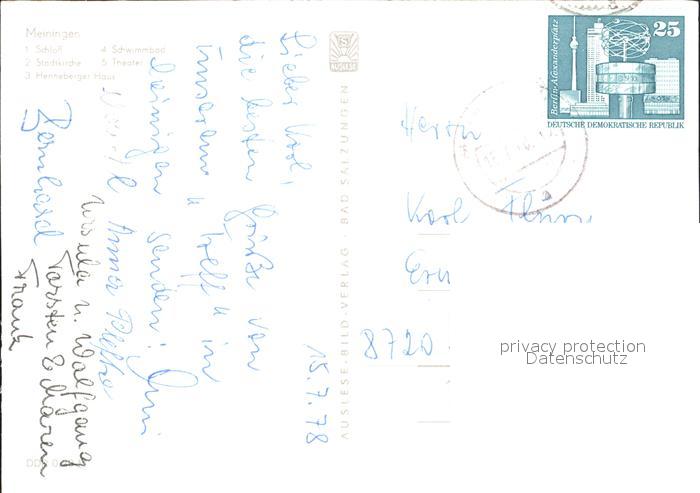 Meiningen
1 Schloß 4 Schwimmbad
2 Stadtkirche 5 Theater
3 Henneberger Haus
15.7.78
Lieber Karl,
die besten Grüße von
unserem "Treff" in
Meiningen senden:
Anna
Ursula u. Wolfgang
Bernhard Torsten & Maren
Frank
AUSLESE
AUSLESE-BILD-VERLAG · BAD SALZUNGEN
Berlin-Alexanderplatz
25
DEUTSCHE DEMOKRATISCHE REPUBLIK
Herrn
Karl
8720
privacy protection
Datenschutz